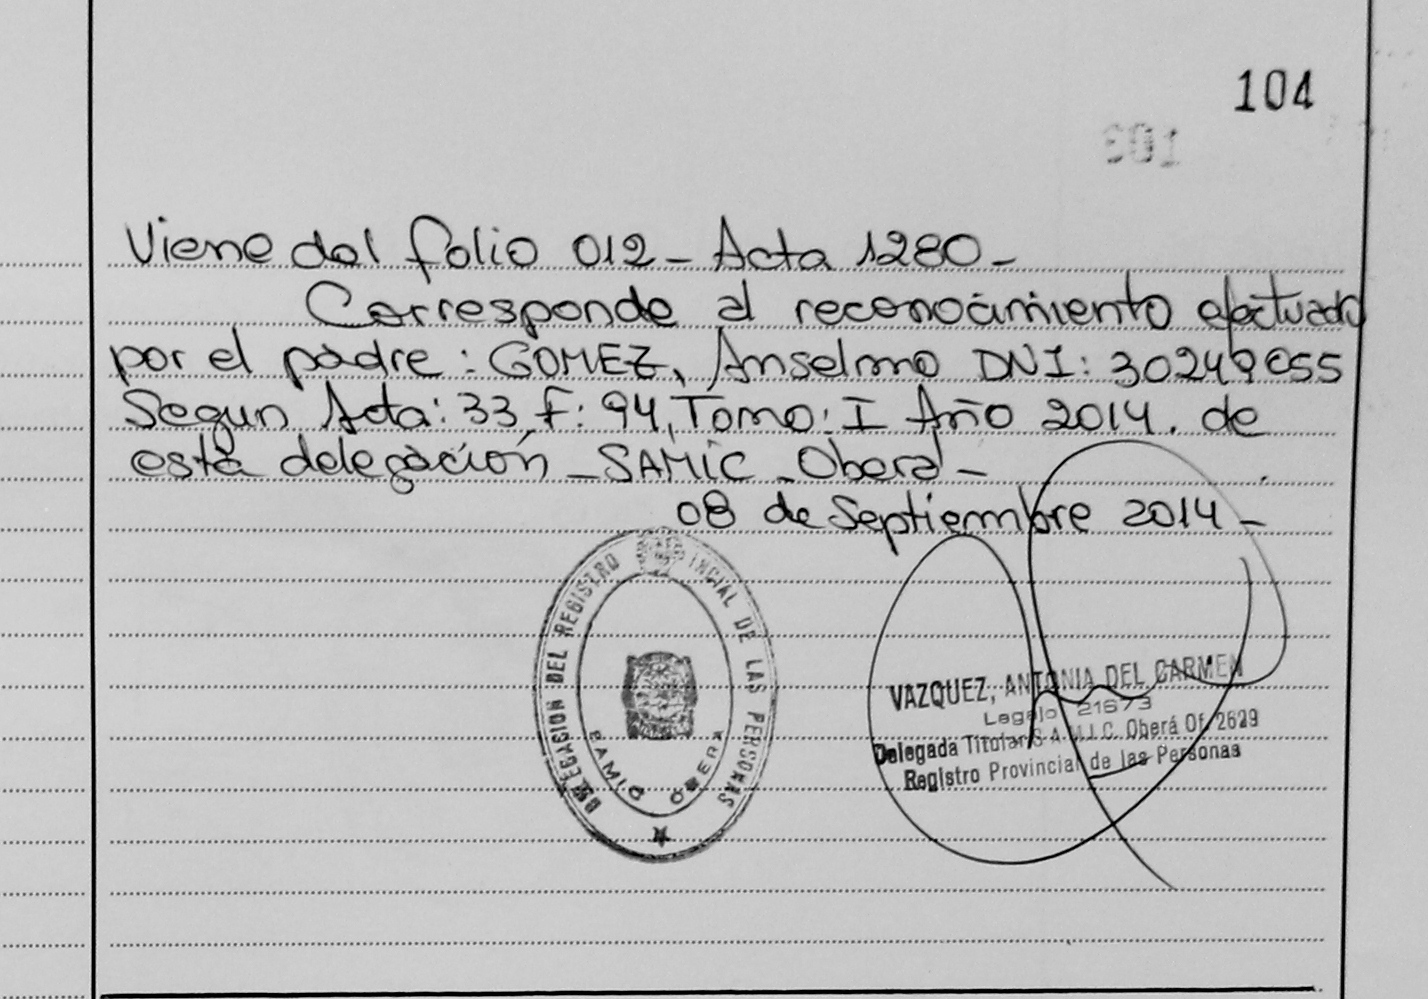 104
103
Viene del folio 012 - Acta 1280 -
Corresponde al reconocimiento efectuado
por el padre : GOMEZ, Anselmo DNI: 30249855
Segun Acta: 33, F: 94, Tomo: I Año 2014. de
esta delegación - SAMIC - Oberá -
08 de Septiembre 2014 -
DELEGACION DEL REGISTRO PROVINCIAL DE LAS PERSONAS
SAMIC OBERA
VAZQUEZ, ANTONIA DEL CARMEN
Legajo 21673
Delegada Titular S.A.M.I.C. Oberá Of. 2629
Registro Provincial de las Personas